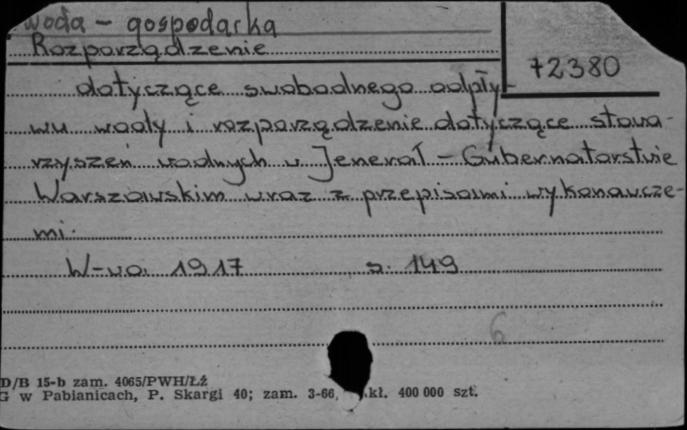 woda - gospodarka
Rozporządzenie
72380
dotyczące swobodnego odpły-
wu wody i rozporządzenie dotyczące stowa-
rzyszeń wodnych w Jenerał-Gubernatorstwie
Warszawskim wraz z przepisami wykonawcze-
mi.
W-wa 1917 s. 149
6
D/B 15-b zam. 4065/PWH/ŁŹ
G w Pabianicach, P. Skargi 40; zam. 3-66, kł. 400 000 szt.